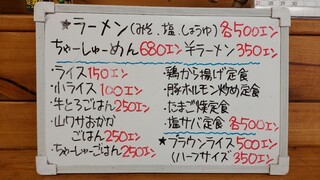 ★ラーメン(みそ、塩、しょうゆ)各500エン
ちゃーしゅーめん680エン 半ラーメン350エン
・ライス150エン
・小ライス100エン
・牛とろごはん250エン
・山ワサおかか
ごはん250エン
・ちゃーしゅーごはん250エン
・鶏から揚げ定食
・豚ホルモン炒め定食
・たまご焼定食
・塩サバ定食 各500エン
★ブラウンライス500エン
(ハーフサイズ)350エン